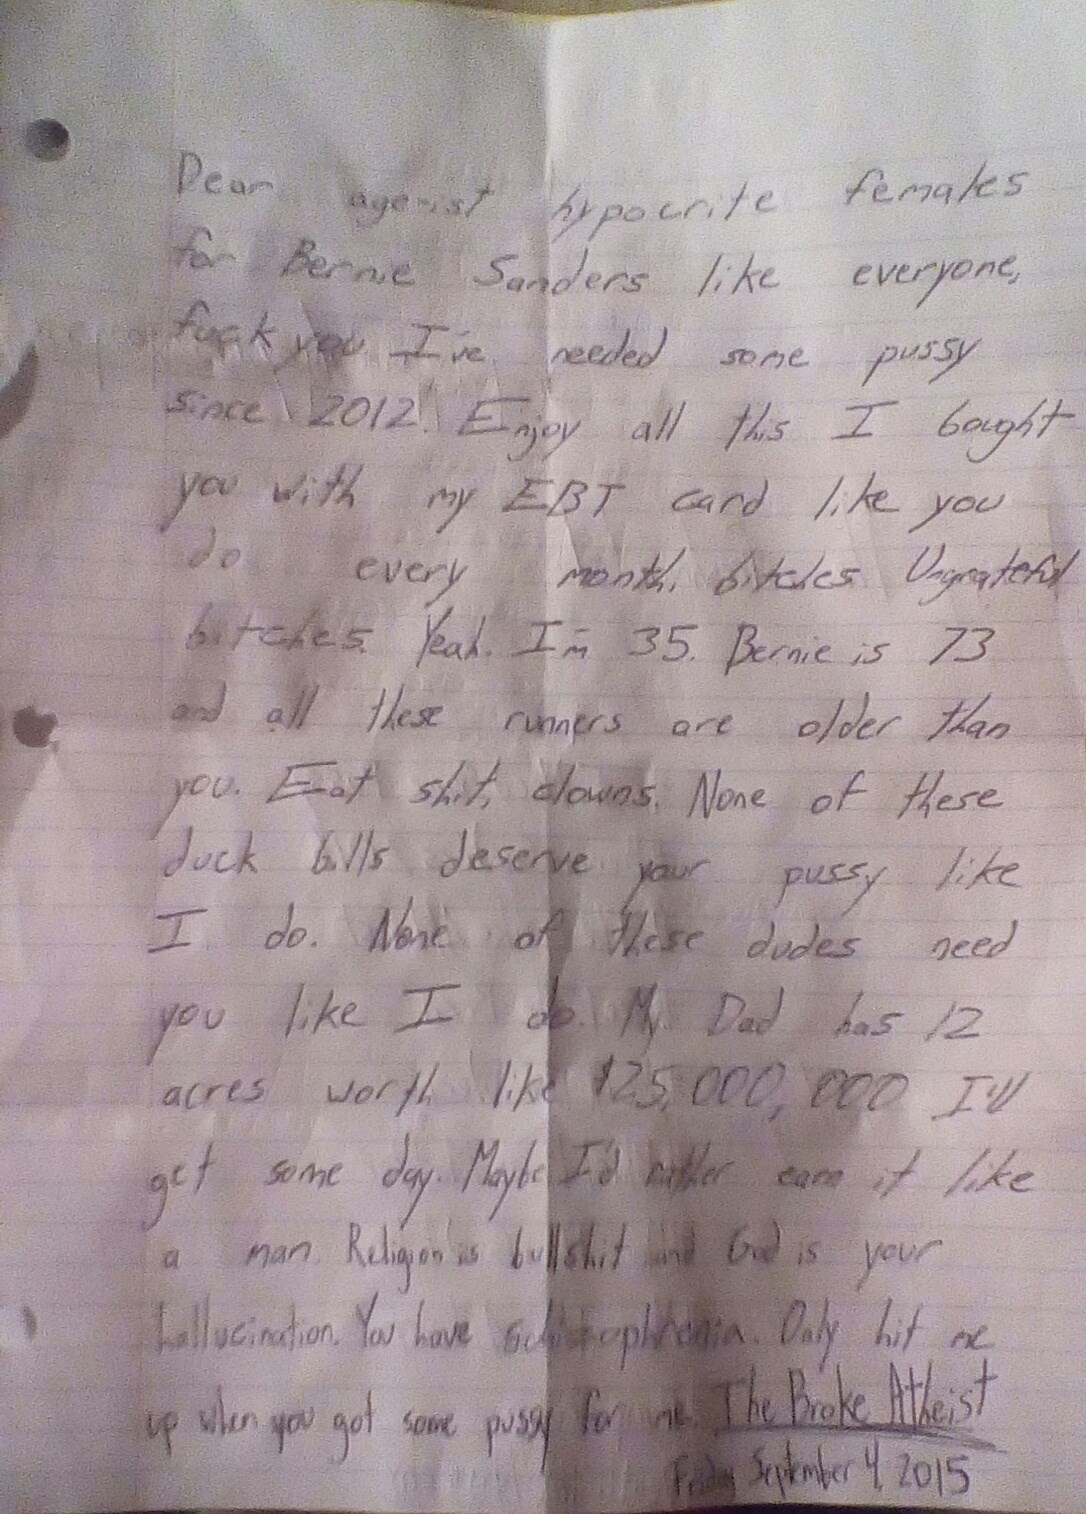 Dear agerist hypocrite females
for Bernie Sanders like everyone,
fuck you. I've needed some pussy
since 2012. Enjoy all this I bought
you with my EBT card like you
do every month, bitches. Ungrateful
bitches. Yeah. I'm 35. Bernie is 73
and all these runners are older than
you. Eat shit, clowns. None of these
duck bills deserve your pussy like
I do. None of these dudes need
you like I do. My Dad has 12
acres worth like $25,000,000 I'll
get some day. Maybe I'd rather earn it like
a man. Religion is bullshit and God is your
hallucination. You have schizophrenia. Only hit me
up when you got some pussy for me. The Broke Atheist
Friday September 4, 2015